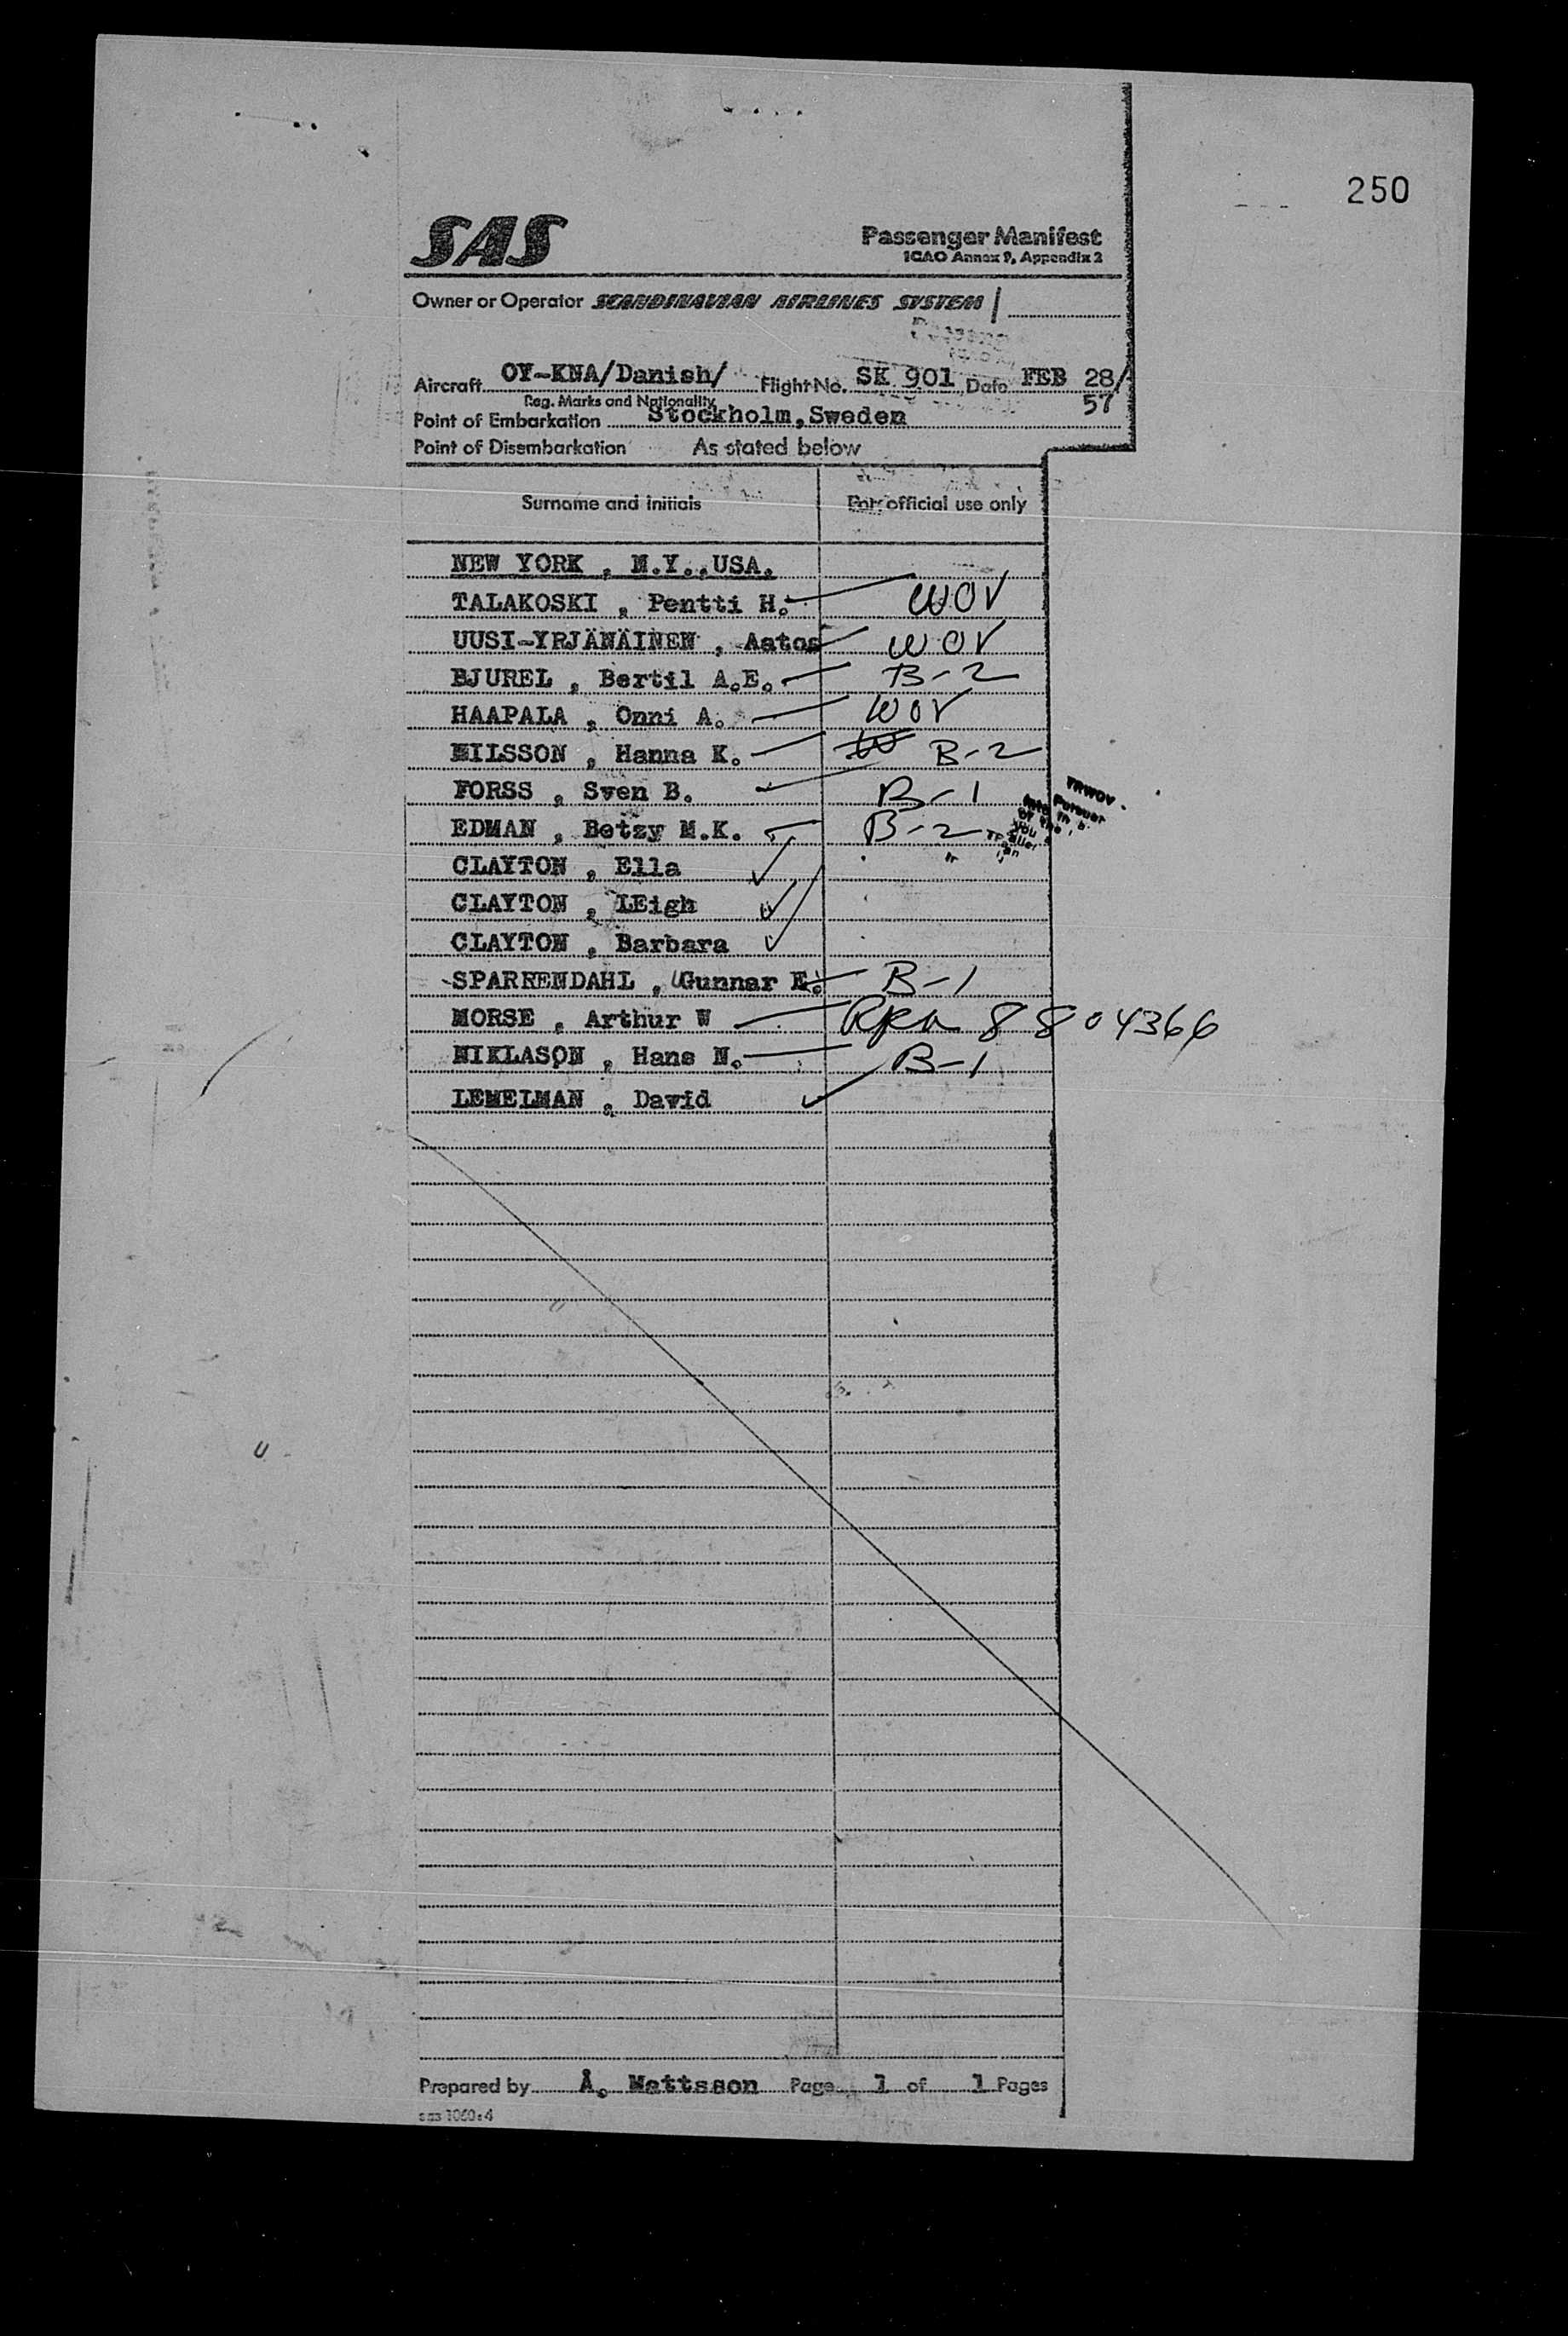 250
SAS
Passenger Manifest
ICAO Annex 9, Appendix 2
Owner or Operator SCANDINAVIAN AIRLINES SYSTEM
Aircraft OY-KNA/Danish/ Flight No. SK 901 Date FEB 28/
57
Reg. Marks and Nationality
Point of Embarkation Stockholm, Sweden
Point of Disembarkation As stated below
Surname and initials For official use only
NEW YORK , N.Y.,USA.
TALAKOSKI , Pentti H. WOV
UUSI-YRJÄNÄINEN , Aatos WOV
BJUREL , Bertil A.E. B-2
HAAPALA , Onni A. WOV
NILSSON , Hanna K. B-2
FORSS , Sven B. B-1
EDMAN , Betzy M.K. B-2
CLAYTON , Ella
CLAYTON , LEigh
CLAYTON , Barbara
SPARRENDAHL , Gunnar E. B-1
MORSE , Arthur W 8804366
NIKLASON , Hans N. B-1
LEMELMAN , David
TRWOV
Prepared by Å. Mattsson Page 1 of 1 Pages
sas 1060:4